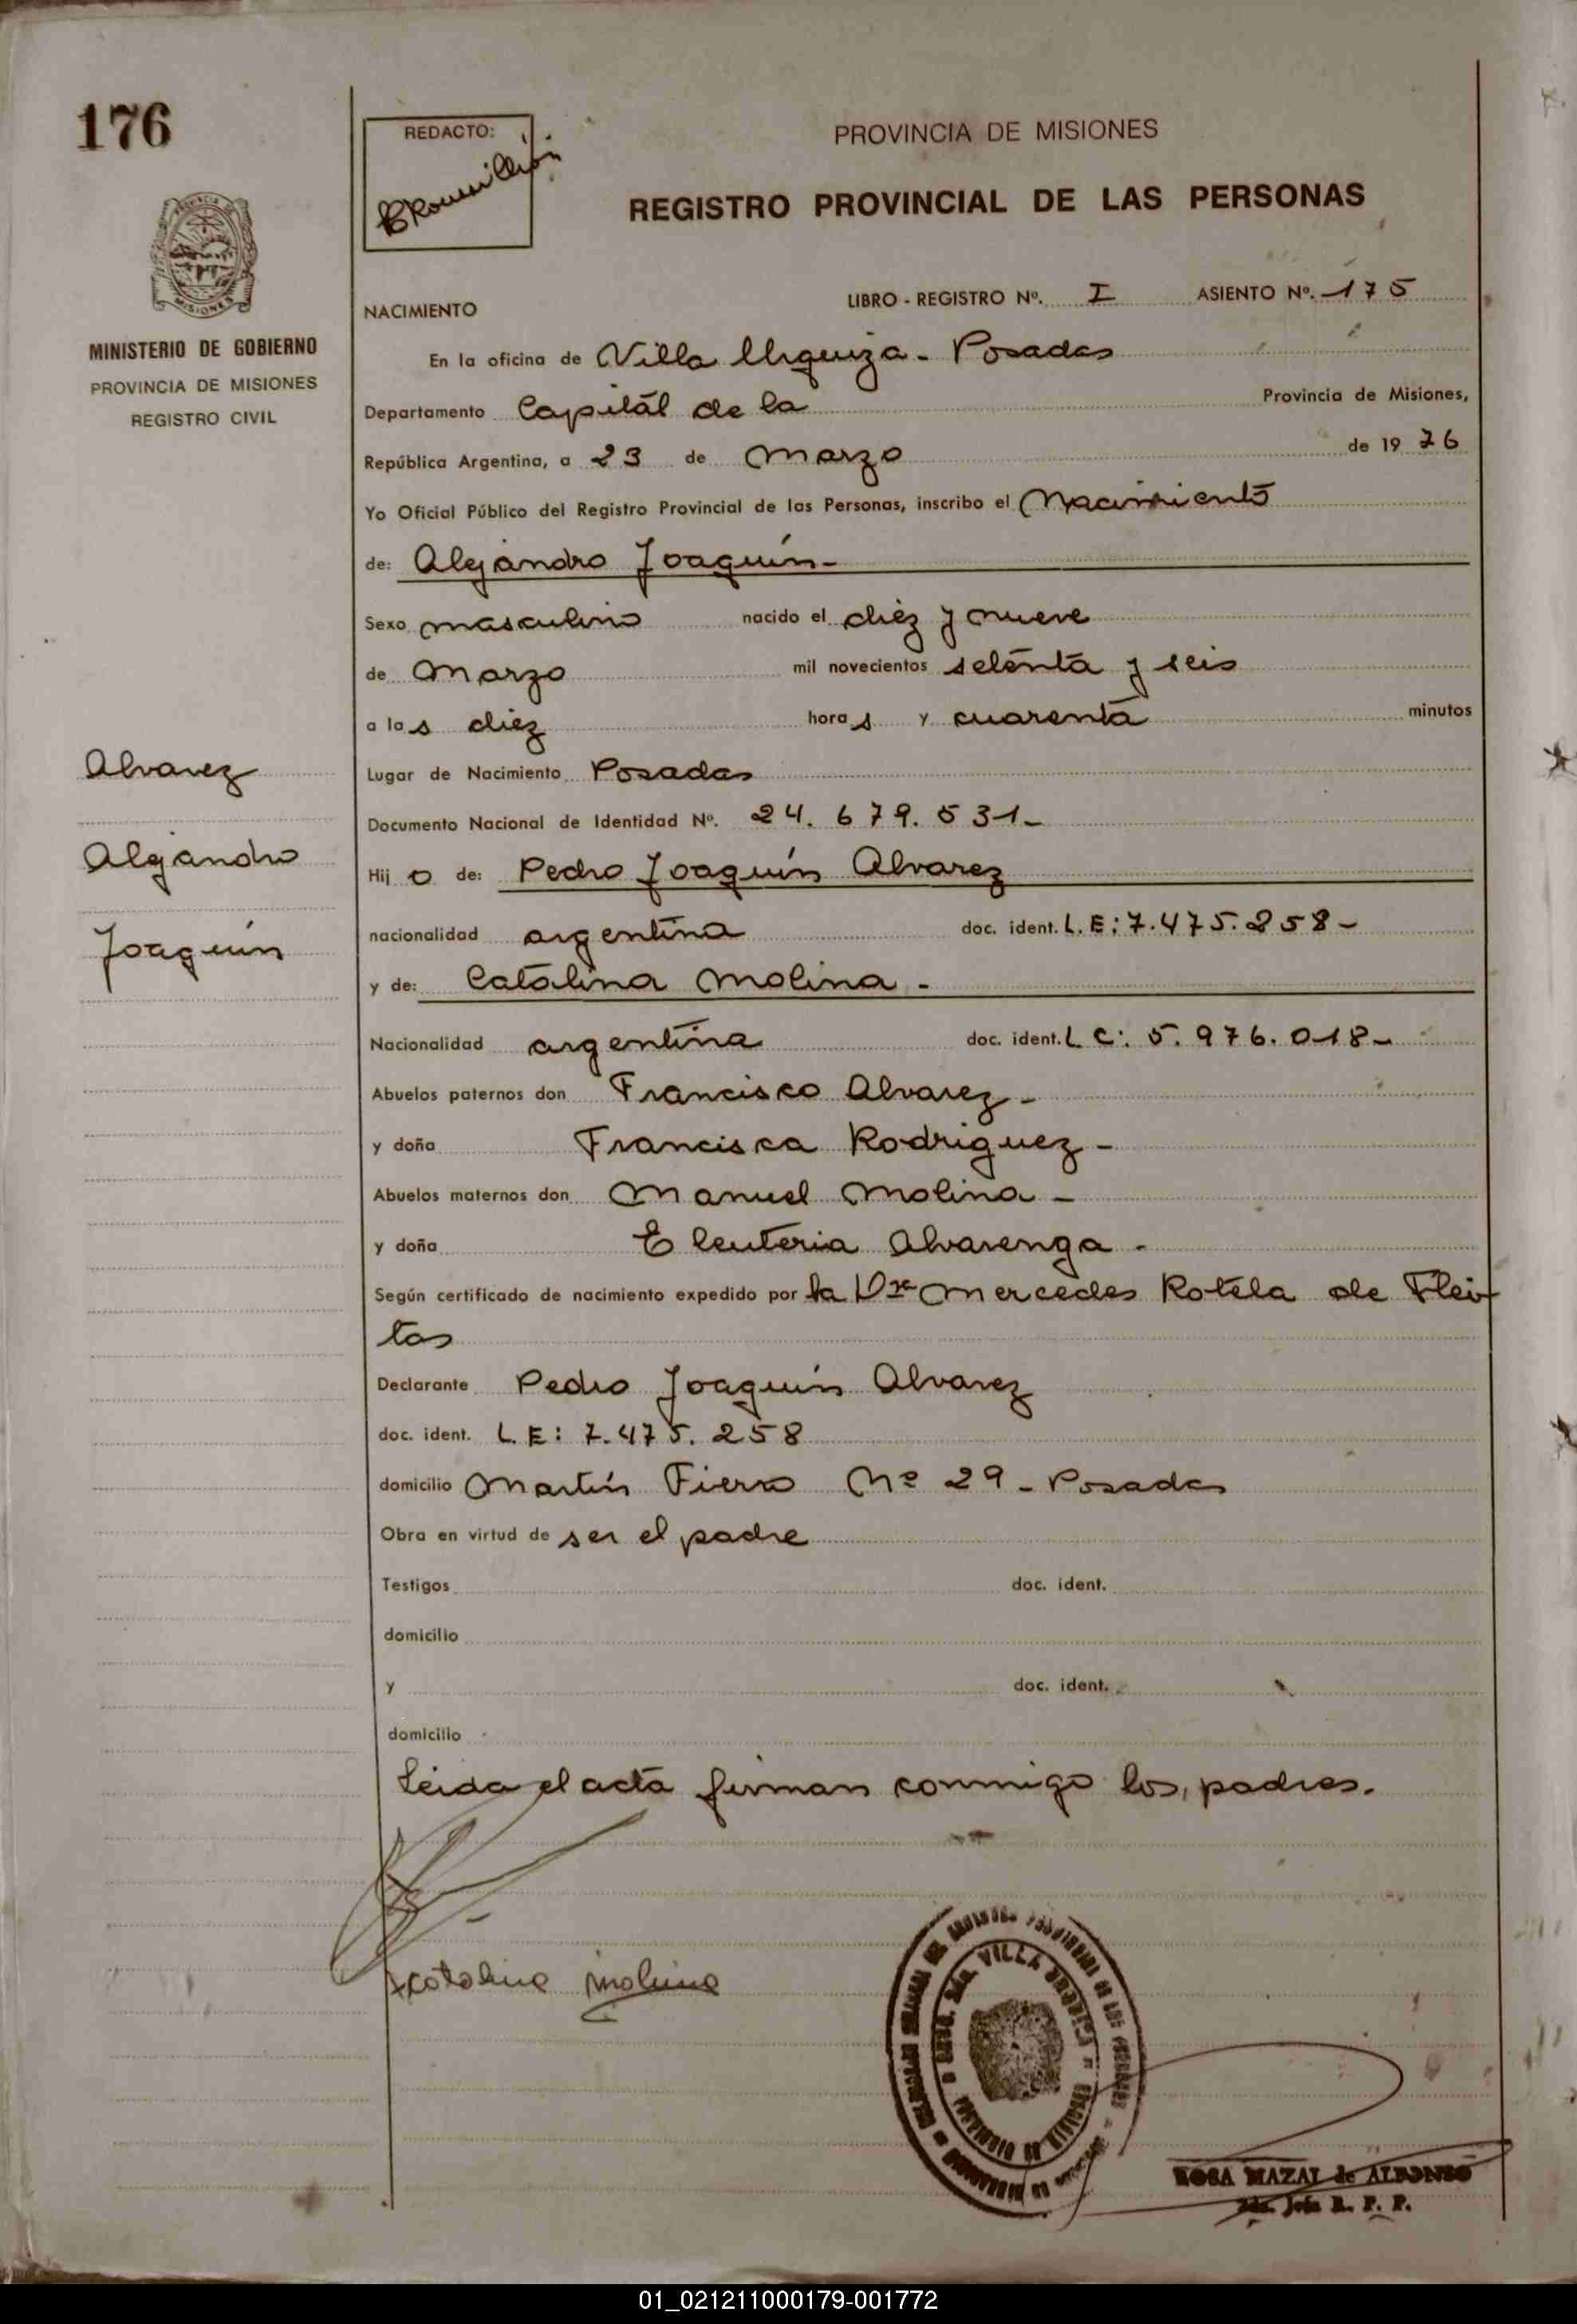 176
REDACTO:
PROVINCIA DE MISIONES
REGISTRO PROVINCIAL DE LAS PERSONAS
MISIONES
MINISTERIO DE GOBIERNO
PROVINCIA DE MISIONES
REGISTRO CIVIL
NACIMIENTO
LIBRO - REGISTRO Nº. I ASIENTO Nº. 175
En la oficina de Villa Urquiza - Posadas
Departamento Capitál de la Provincia de Misiones,
República Argentina, a 23 de Marzo de 1976
Yo Oficial Público del Registro Provincial de las Personas, inscribo el Nacimiento
de: Alejandro Joaquín -
Sexo masculino nacido el diéz y nueve
de Marzo mil novecientos seténta y seis
a las diez horas y cuarenta minutos
Alvarez
Lugar de Nacimiento Posadas
Documento Nacional de Identidad Nº. 24.679.531-
Alejandro
Hijo de: Pedro Joaquín Alvarez
nacionalidad argentina doc. ident. L.E: 7.475.258-
Joaquín
y de: Catalina Molina -
Nacionalidad argentina doc. ident. L C: 5.976.018-
Abuelos paternos don Francisco Alvarez -
y doña Francisca Rodriguez -
Abuelos maternos don Manuel Molina -
y doña Eleuteria Alvarenga -
Según certificado de nacimiento expedido por la Dra Mercedes Rotela de Flei-
tas
Declarante Pedro Joaquín Alvarez
doc. ident. L.E: 7.475.258
domicilio Martín Fierro Nº 29 - Posadas
Obra en virtud de ser el padre
Testigos doc. ident.
domicilio
y doc. ident.
domicilio
Leida el acta firman conmigo los padres.
Catalina Molina
VILLA URQUIZA
ROSA MAZAL de ALFONSO
R. P. P.
01_021211000179-001772